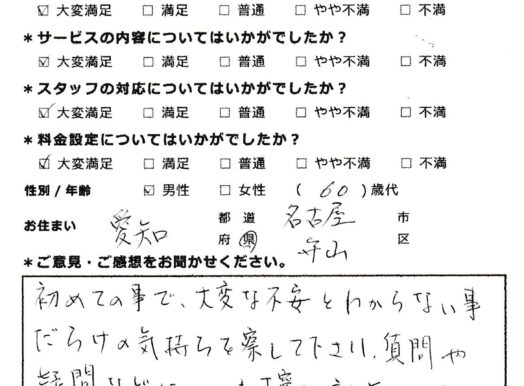 ☑ 大変満足 □ 満足 □ 普通 □ やや不満 □ 不満
＊サービスの内容についてはいかがでしたか？
☑ 大変満足 □ 満足 □ 普通 □ やや不満 □ 不満
＊スタッフの対応についてはいかがでしたか？
☑ 大変満足 □ 満足 □ 普通 □ やや不満 □ 不満
＊料金設定についてはいかがでしたか？
☑ 大変満足 □ 満足 □ 普通 □ やや不満 □ 不満
性別 / 年齢 ☑ 男性 □ 女性 ( 60 ) 歳代
お住まい 愛知 都 道 府 県 名古屋 市
守山 区
＊ご意見・ご感想をお聞かせください。
初めての事で、大変な不安とわからない事
だらけの気持ちを察して下さり、質問や
疑問